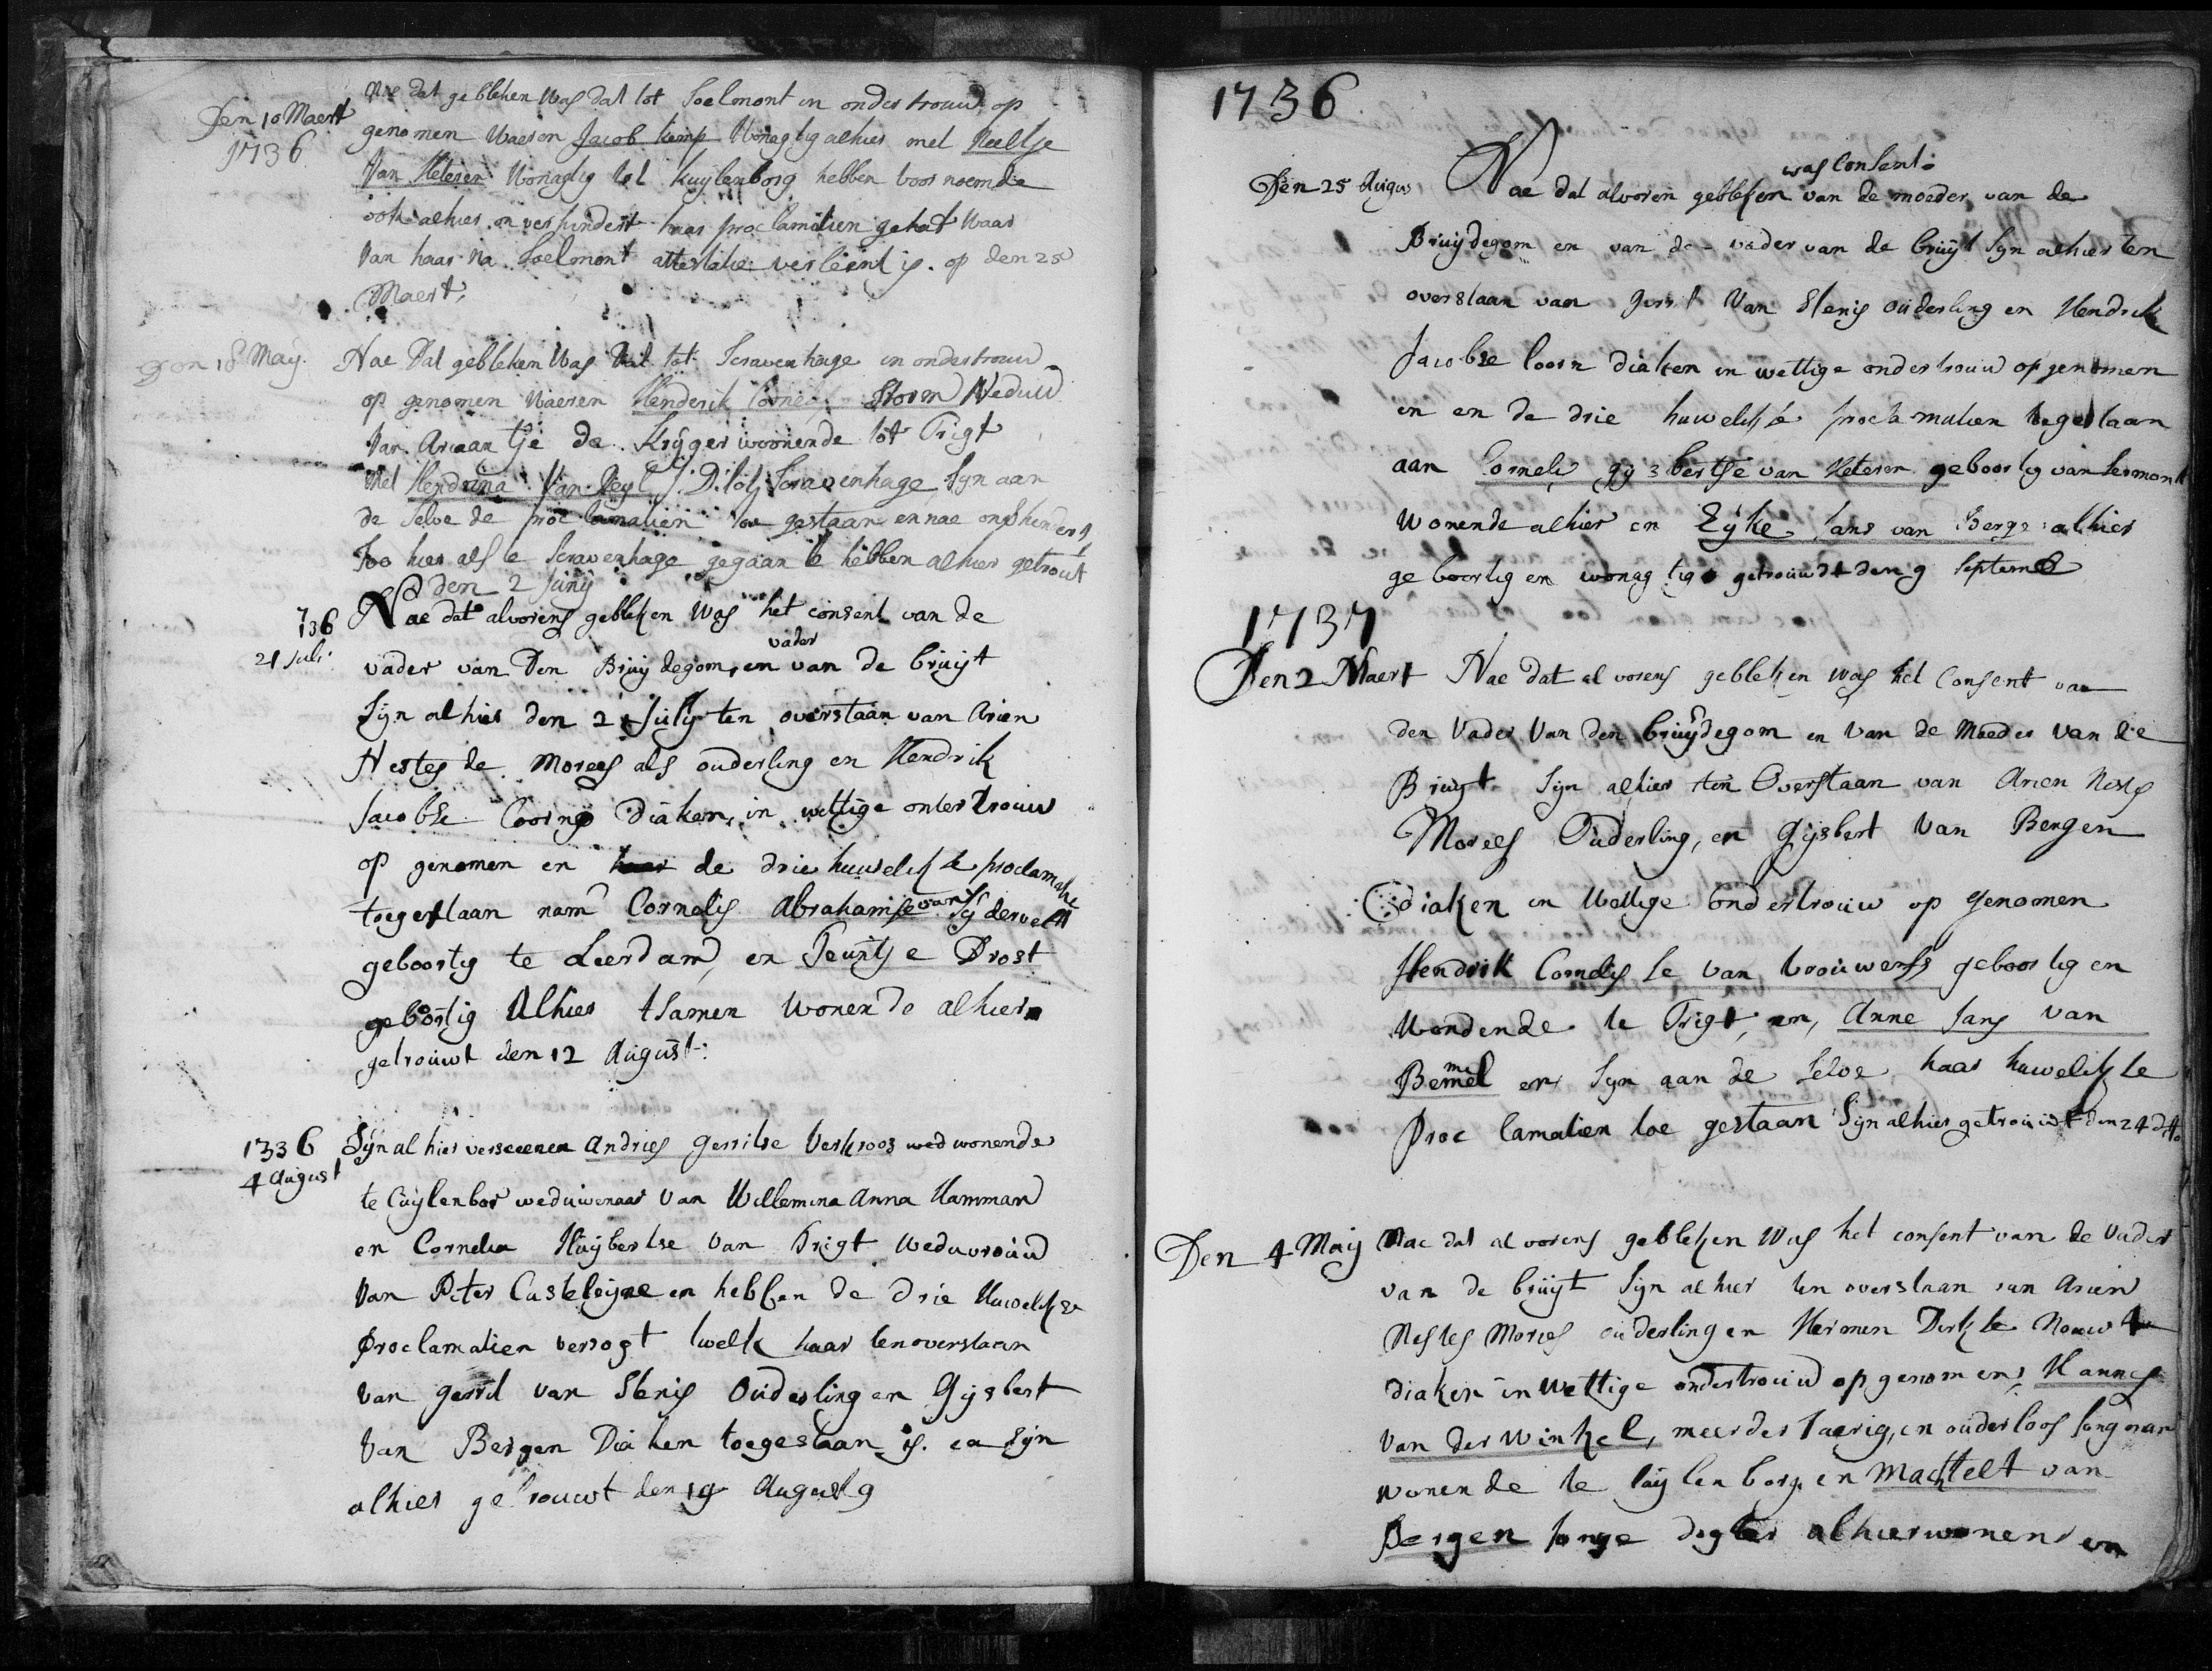 Den 10 Maert
1736
Nae dat gebleken was dat tot Soelmont in ondertrouw op
genomen waeren Jacob Kemp wonagtig alhier met Neeltje
Van Keteren wonagtig tot Kuylenborg hebben voornoemde
ook alhier onverhindert haar proclamatien gehat waar
van haar na Soelmont attestatie verleent is. op den 25
Maert.
Den 18 Maÿ.
Nae dat gebleken was dat tot Scravenhage in ondertrouw
op genomen waeren Henderik Cornelis Storm Weduw
van Ariaantje de Krÿger woonende tot Trigt
Met Hendrina van Deyl J:D: tot Scravenhage, Syn aan
de selve de proclamatien toe gestaan en nae onverhindert
soo hier als te Scravenhage gegaan te hebben alhier getrout
den 2 Junÿ
1736
21 Juli
Nae dat alvorens gebleken was het consent van de
vader
vader van Den Bruydegom, en van de bruyt
Syn alhier den 21 July ten overstaan van Arien
Nestes de Morees als ouderling en Hendrik
Jacobse Coorn Diaken, in wettige ondertrouw
op genomen en haar de drie huwelykse proclamatie
toegestaan nam Cornelis Abrahamse van Sijdervelt
geboortig te Leerdam, en Teuntje Drost
gebortig Alhier tsamen Wonende alhier
getrouwt den 12 August:
1736
4 August
Syn al hier verscenen Andries Gerritse Verkroos wed wonende
te Cuylenbor weduwenaar van Willemina Anna Hamman
en Cornelia Huybertse van Trigt Weduvrouw
van Peter Casteleijne en hebben de drie Huwelykse
Proclamatien versogt twelk haar ten overstaan
van Gerrit van Slenis Ouderling en Gysbert
van Bergen Diaken toegestaan is. en Zyn
alhier getrouwt den 19 August
1736
Den 25 Augus
was Consent:
Nae dat alvoren gebleken van de moeder van de
Bruydegom en van de vader van de bruyt Syn alhier ten
overstaan van Gerrit van Slenis ouderling en Hendrik
Jacobse Coorn diaken in wettige ondertrouw op genomen
en en de drie huwelykse proclamatien togestaan
aan Cornelis Gysbertse van Keteren geboortig van Sermont
wonende alhier en Eyke Jans van Berge alhier
geboortig en wonagtig getrouwdt den 9 Septemb
1737
Den 2 Maert
Nae dat al vorens gebleken was het Consent van
den Vader van den bruydegom en van de Moeder van de
Bruyt Syn alhier ten Overstaan van Arien Nestes
Morees Ouderling, en Gysbert van Bergen
diaken in Wettige ondertrouw op genomen
Hendrik Cornelisse van brouwerss geboortig en
Wondende te Trigt, en, Anne Jans van
Bemmel en Syn aan de selve haar huwelykse
Proclamatien toe gestaan Syn alhier getrouwt den 24 ditto
Den 4 Maÿ
Nae dat al vorens gebleken was het consent van de Vader
van de bruyt Syn alhier ten overstaan van Arien
Nestes Morees ouderling en Hermen Dirkse Nouwt
diaken in Wettige ondertrouw op genomen, Hannes
van der Winkel, meerder Jaerig, en ouderloos Jongman
wonende te Cuylenborg en Machtelt van
Bergen Jonge dogter alhier wonend en